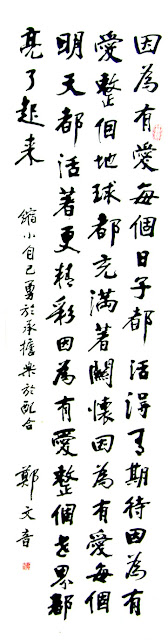 因為有愛每個日子都活得有期待因為有
愛整個地球都充滿著關懷因為有愛每個
明天都活著更精彩因為有愛整個世界都
亮了起来
縮小自己勇於承擔樂於配合
鄭文音